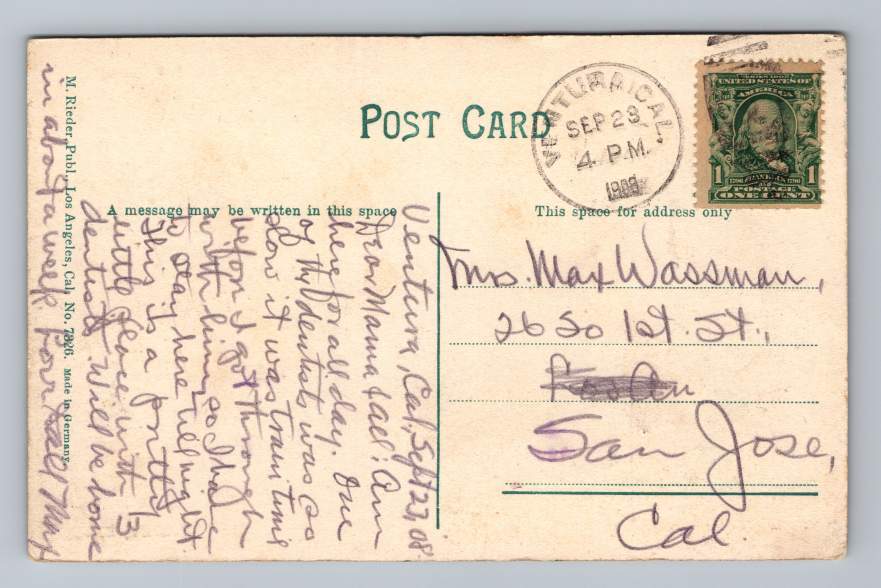 POST CARD
VENTURA, CAL.
SEP 23
4 P.M.
1908
UNITED STATES OF
AMERICA
1 FRANKLIN 1
POSTAGE
ONE CENT
A message may be written in this space
This space for address only
Mrs. Max Wassman,
26 So 1st. St.,
San Jose,
Cal.
Ventura, Cal, Sept 23, 08
Dear Mama & all: Am
here for all day. One
of the dentists was so
slow it was train time
before I got through
with him, so I have
to stay here till night
This is a pretty
little place with 13
dentists. Will be home
in about a week. Max
M. Rieder, Publ., Los Angeles, Cal. No. 7826. Made in Germany.